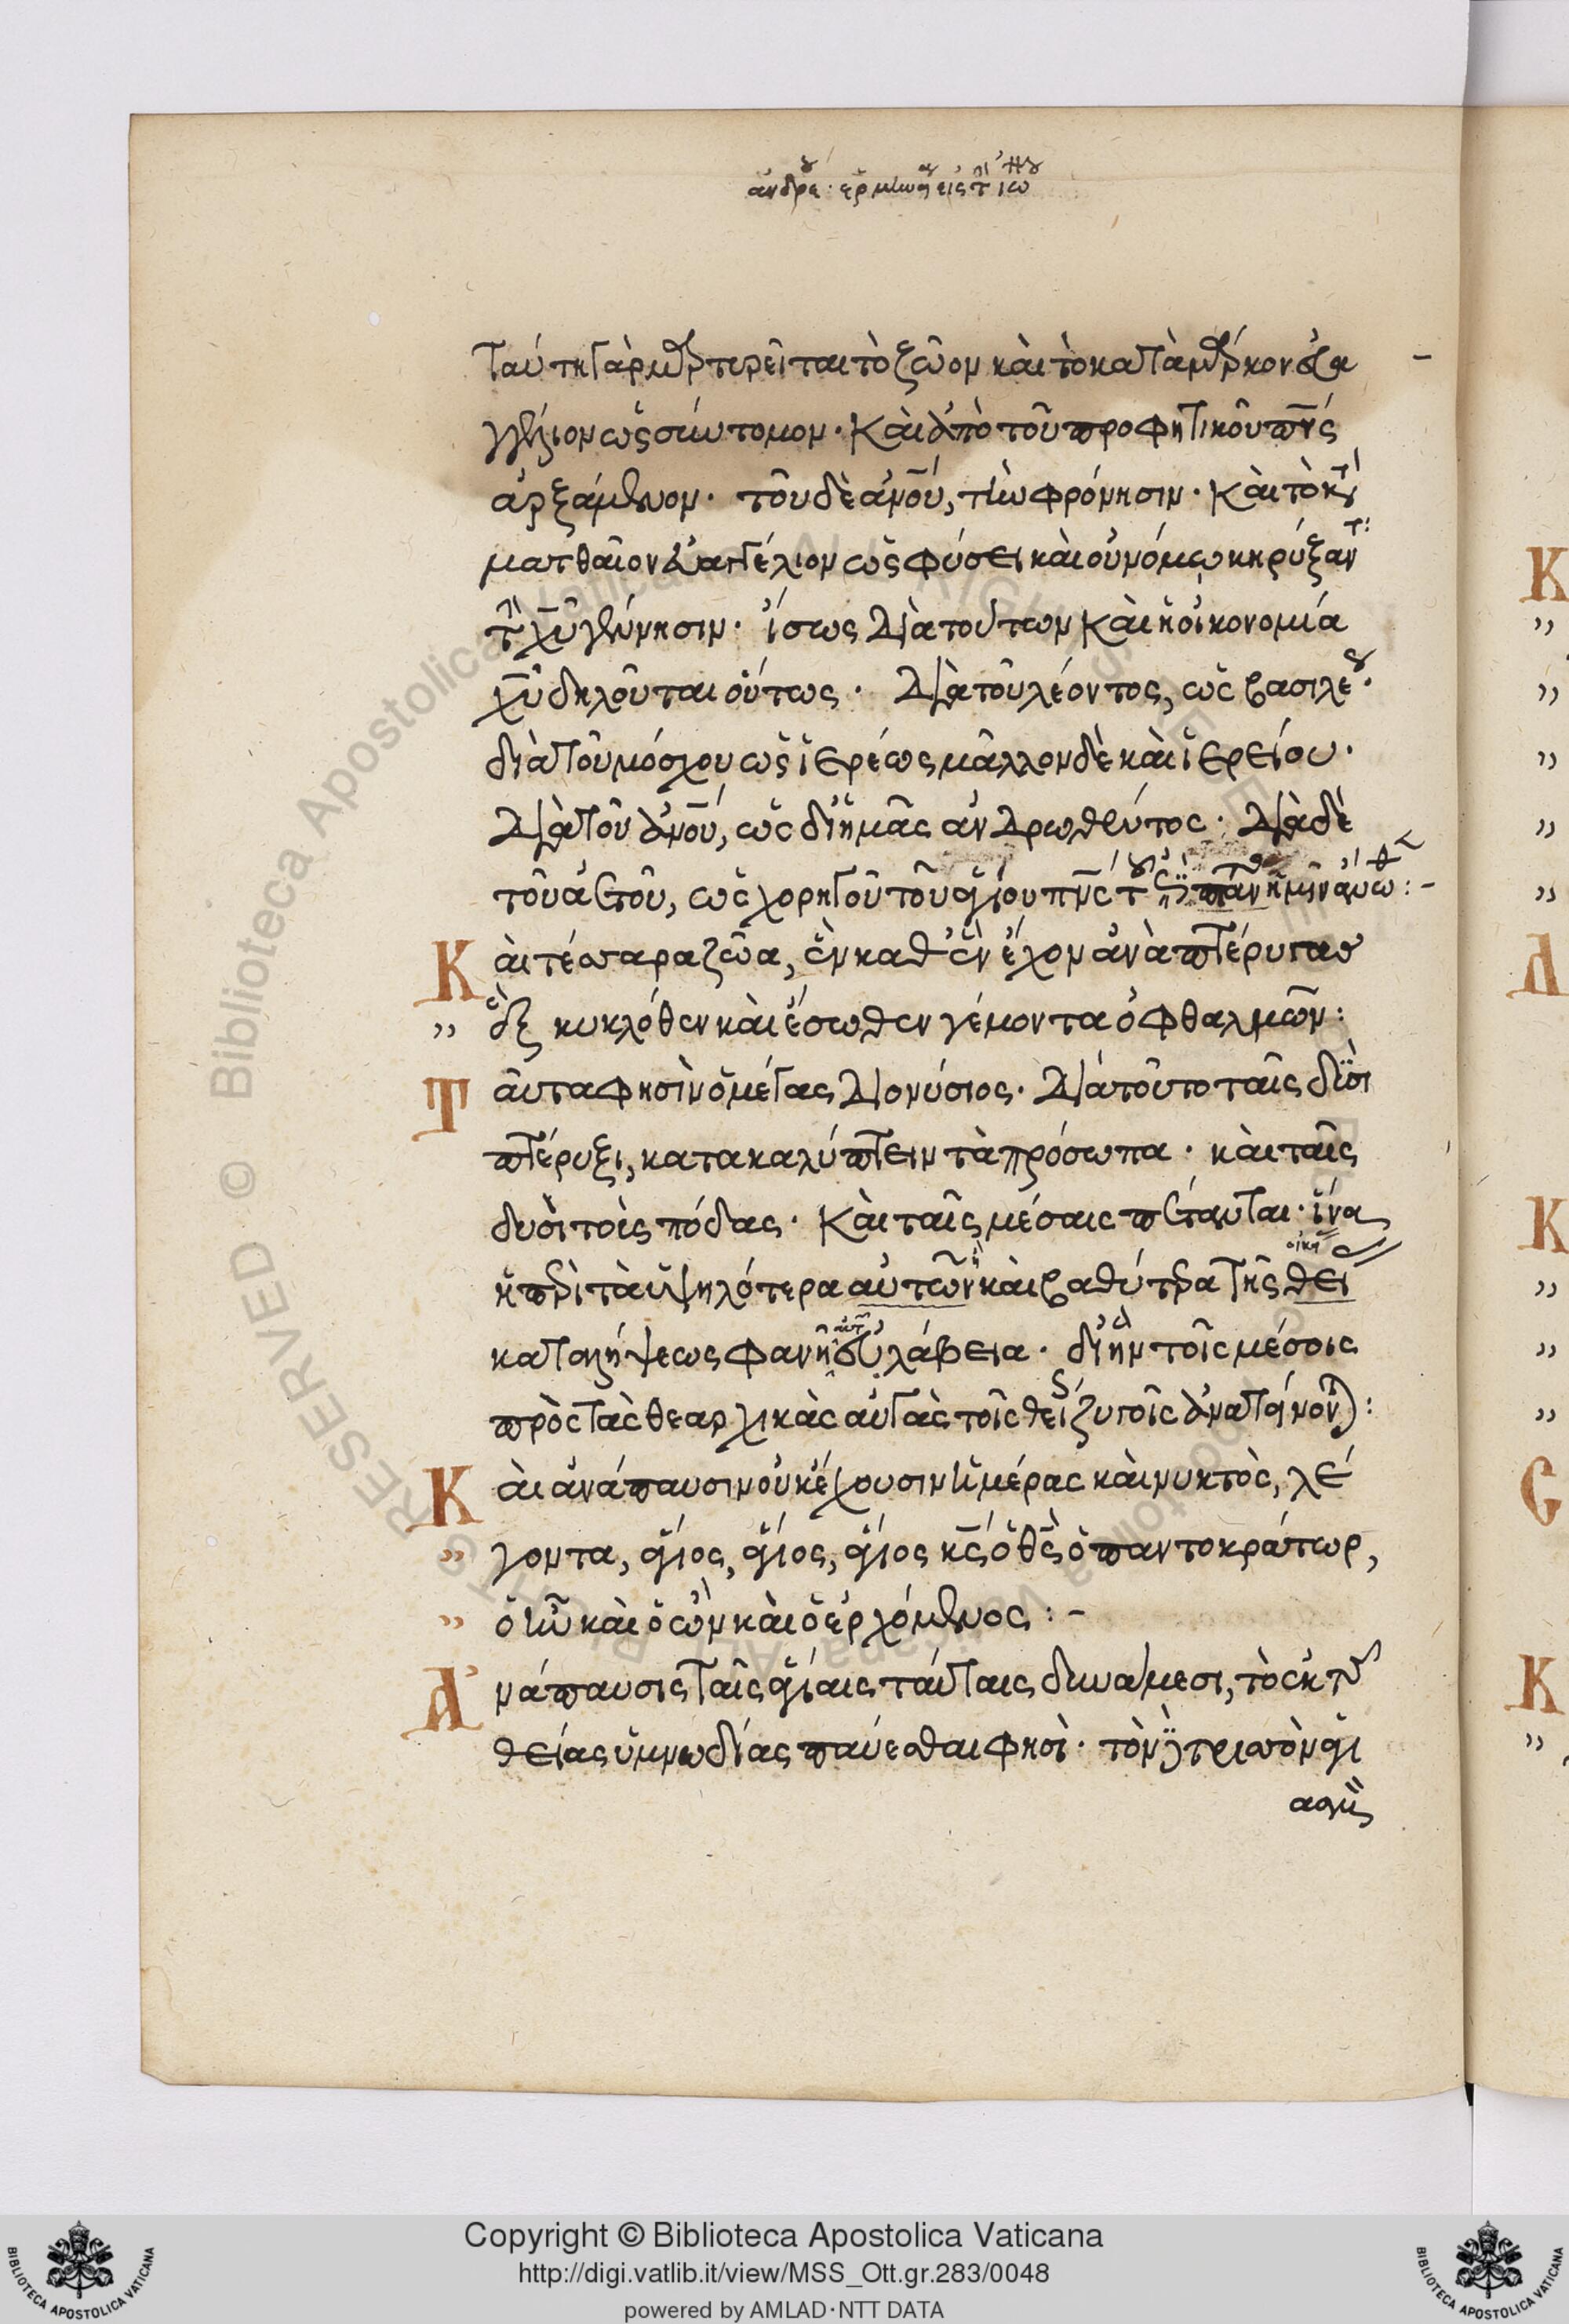 ἀνδρε · ερμ εις τ ιω
Ταύτη γὰρ μετρεῖται τὸ ζῶον καὶ τὸ κατὰ μάρκον εὐα
γγέλιον ὡς σύντομον · Καὶ ἀπὸ τοῦ προφητικοῦ πν̅ς
ἀρξάμενον · τοῦ δὲ ἀν̅ου, τὴν φρόνησιν · Καὶ τὸ κτ
ματθαῖον εὐαγγέλιον ὡς φύσει καὶ οὐ νόμω κηρύξαντ :
τὴν χ̅υ γέννησιν · ἴσως Διὰ τούτων Καὶ ἡ οἰκονομία
χ̅υ δηλοῦται οὕτως · Διὰ τοῦ λέοντος, ὡς βασιλε ·
διὰ τοῦ μόσχου ὡς ἱερέως μᾶλλον δὲ καὶ ἱερείου ·
Διὰ τοῦ ἀν̅ου, ὡς δι ἡμᾶς ἀνδρωθέντος · Διὰ δὲ
τοῦ ἀετοῦ, ὡς χορηγοῦ τοῦ ἁγίου πν̅ς τ ἡμῖν ἄνωθ : -
Καὶ τέσσαρα ζῶα, ἓν καθ ἓν ἔχον ἀνὰ πτέρυγας
" ἓξ κυκλόθεν καὶ ἔσωθεν γέμοντα ὀφθαλμῶν :
Ταῦτα φησὶν ὁ μέγας Διονύσιος · Διὰ τοῦτο ταῖς δυσὶ
πτέρυξι, κατακαλύπτειν τὰ πρόσωπα · καὶ ταῖς
δυσὶ τοὺς πόδας · Καὶ ταῖς μέσαις πέτανται · ἵνα
ἡ περὶ τὰ ὑψηλότερα αὐτῶν καὶ βαθύτερα τῆς θεϊ
καταλήψεως φανῆ εὐλάβεια · δι ἣν τοῖς μέσοις
πρὸς τὰς θεαρχικὰς αὐγὰς τοῖς θείς ζυγοῖς ἀνατείνον) :
Καὶ ἀνάπαυσιν οὐκ ἔχουσιν ἡμέρας καὶ νυκτὸς, λέ
" γοντα, ἅγιος, ἅγιος, ἅγιος κ̅ς ὁ θ̅ς ὁ παντοκράτωρ,
" ὁ ἦν καὶ ὁ ὢν καὶ ὁ ἐρχόμενος : -
Ἀνάπαυσις ταῖς ἁγίαις ταύταις δυνάμεσι, τὸ ἐκ τῆς
θείας ὑμνωδίας παύεσθαι φησὶ · τὸν τρισσὸν ἁγι